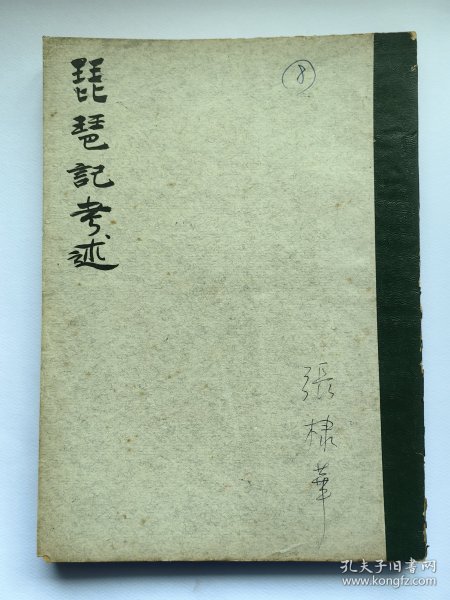 琵琶記考述
8
張棣華
孔夫子旧书网
www.kongfz.com